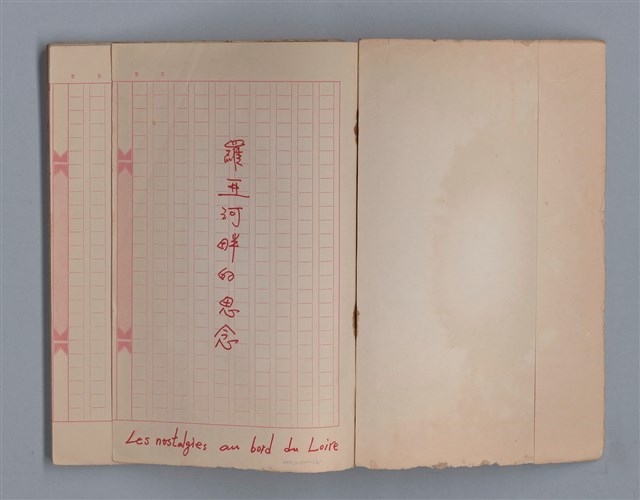 羅亞河畔的思念
Les nostalgies au bord du Loire